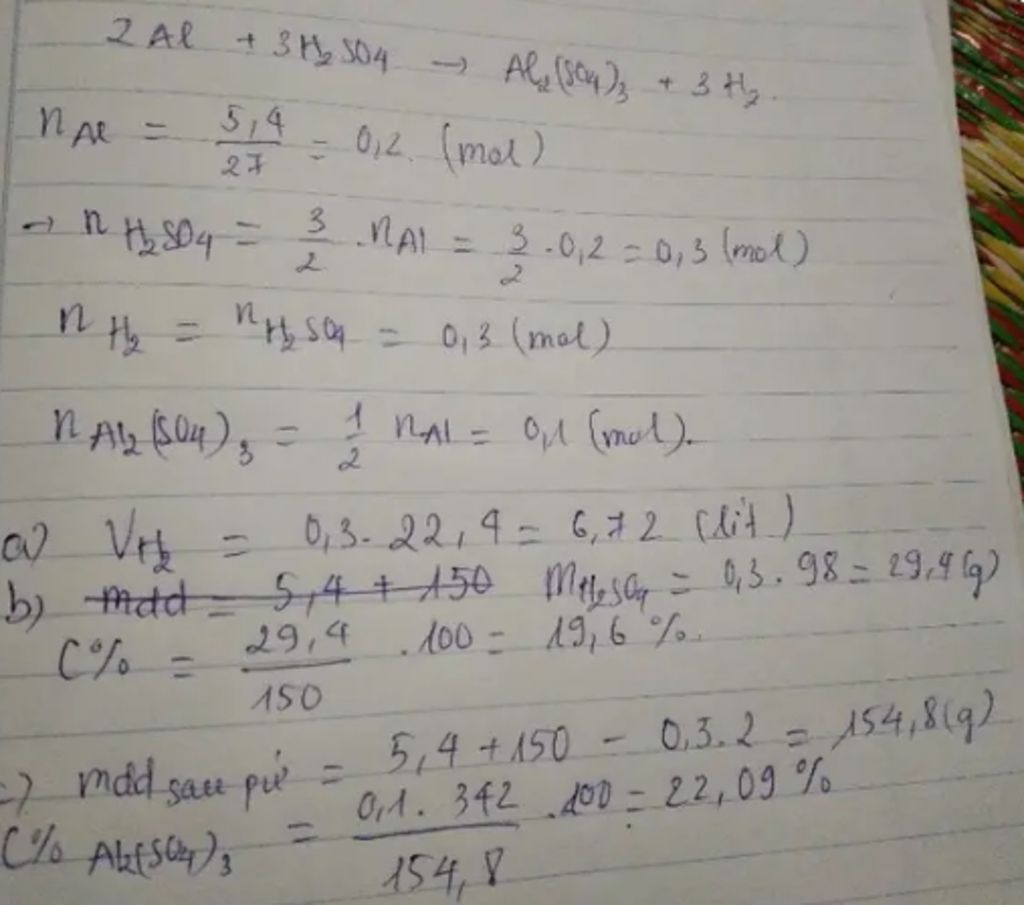 2 Al + 3 H₂SO4 → Al₂(SO4)₃ + 3 H₂.
n Al = 5,4/27 = 0,2. (mol)
→ n H₂SO4 = 3/2 . nAl = 3/2 . 0,2 = 0,3 (mol)
n H₂ = n H₂SO4 = 0,3 (mol)
n Al₂(SO4)₃ = 1/2 nAl = 0,1 (mol).
a) V H₂ = 0,3. 22,4 = 6,72 (lit)
b) mdd = 5,4 + 150 mH₂SO4 = 0,3. 98 = 29,4 (g)
C% = 29,4/150 .100 = 19,6 %.
) mdd sau pư = 5,4 + 150 - 0,3.2 = 154,8 (g)
C% Al₂(SO4)₃ = 0,1. 342/154,8 .100 = 22,09 %